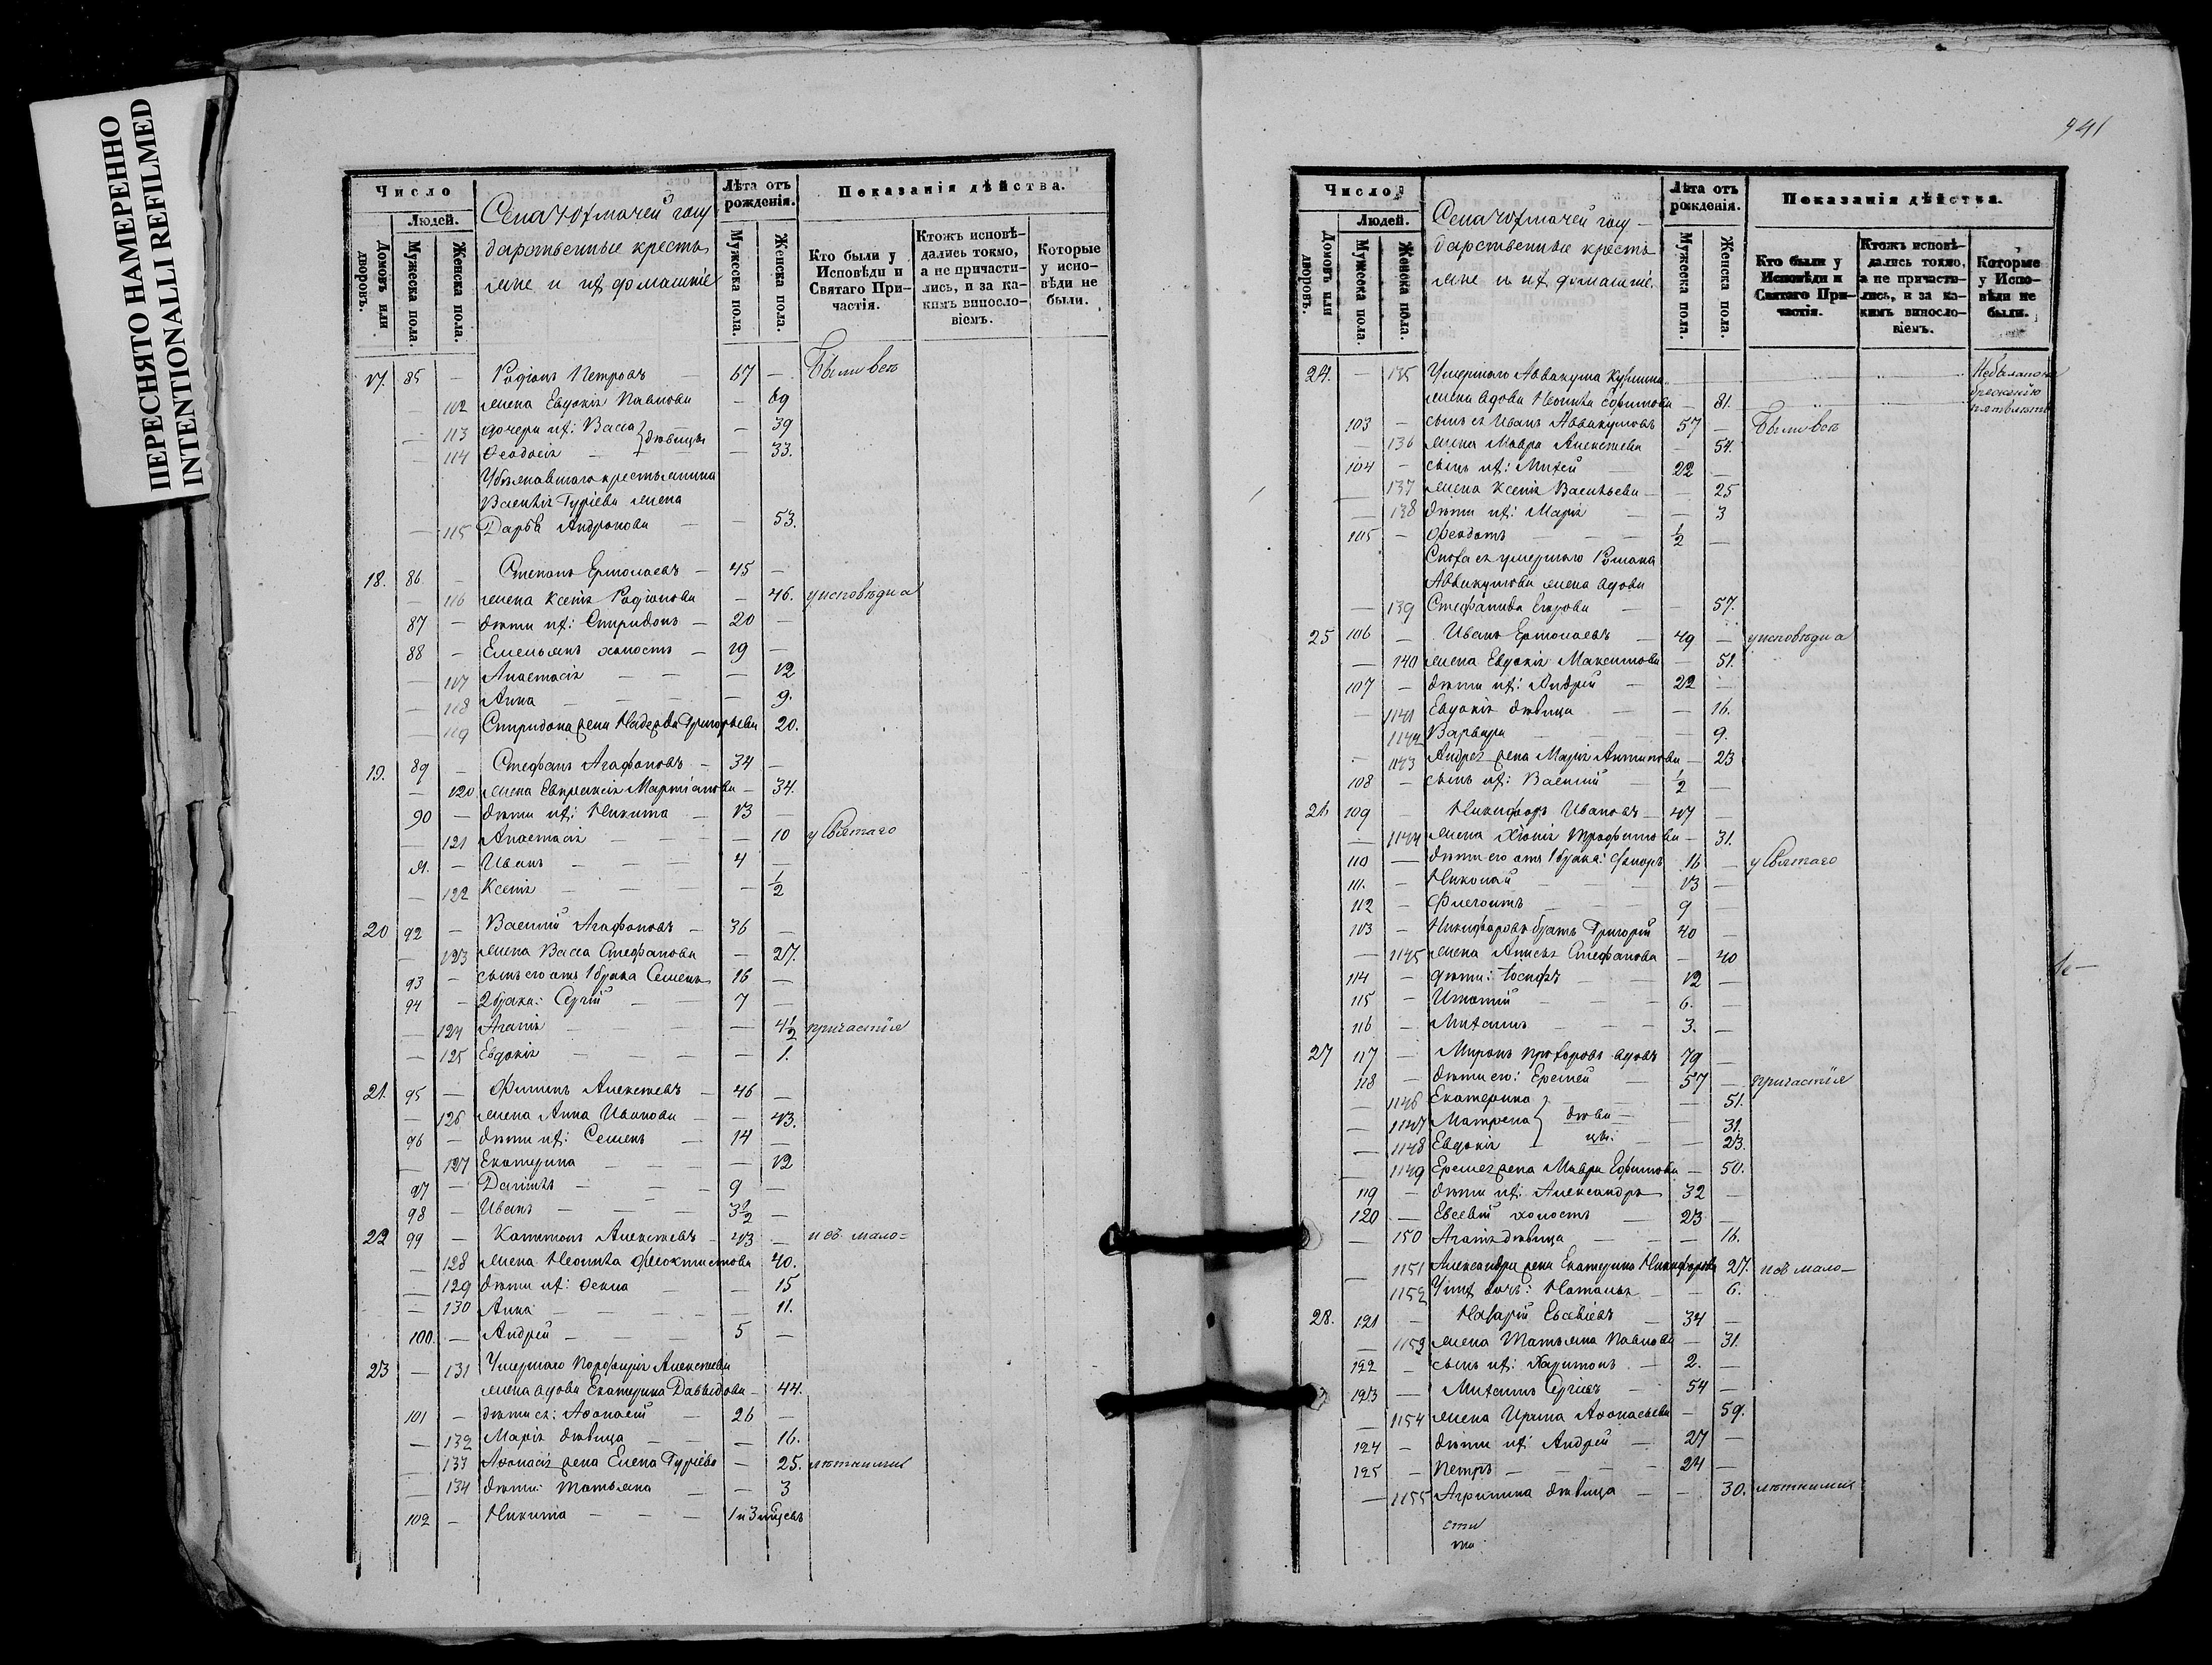 ПЕРЕСНЯТО НАМЕРЕННО
INTENTIONALLI REFILMED
Число
Людей.
Домовъ или дворовъ.
Мужеска пола.
Женска пола.
государственные кресть
яне и их домашніе
Лѣта отъ рожденія.
Мужеска пола.
Женска пола.
Показанія дѣйства.
Кто были у Исповѣди и Святаго Причастія.
Ктожъ исповѣдались токмо, а не причастились, и за какимъ винословіемъ.
Которые у исповѣди не были.
17. 85 — Родіонъ Петровъ — 67 — Были всѣ
— 112 жена Евдокія Павлова — 69
— 113 дочери их: Васса } дѣвицы — 39
— 114 Ѳеодосія — 33.
Василія Гуріева жена
— 115 Дарья Андронова — 53.
18. 86 — Степанъ Ермолаевъ — 45 —
— 116 жена Ксенія Родіонова — 46. у исповѣди и
87 — дѣти их: Спиридонъ — 20 —
88 — Емельянъ холостъ — 19 —
— 117 Анастасія — 12
— 118 Анна — 9.
— 119 Спиридона жена Надежда Григорьева 20.
19. 89 — Стефанъ Агафоновъ — 34 —
— 120 жена Евпраксія Мартіанова — 34.
90 — дѣти их: Никита — 13 —
— 121 Анастасія — 10 у Святаго
91. — Иванъ — 4 —
— 122 Ксенія — 1/2
20 92 — Василій Агафоновъ — 36 —
— 123 жена Васса Стефанова — 27.
93 — сынъ его отъ 1 брака Семенъ 16 —
94 — 2 брака: Сергій — 7 —
— 124 Агапія — 4 1/2 причастія
— 125 Евдокія — 1.
21. 95 — Филипъ Алексѣевъ — 46 —
— 126 жена Анна Иванова — 43.
96 — дѣти их: Семенъ — 14 —
— 127 Екатерина — 12
97 — Даніилъ — 9 —
98 — Иванъ — 3 1/2 —
22 99 — Капитонъ Алексѣевъ — 43 — исъ мало=
— 128 жена Неонила Феоктистова 40.
— 129 дѣти их: Ѳекла — 15
— 130 Анна — 11.
100. — Андрей — 5 —
23 — 131 Умершаго Порфирія Алексѣева
жена вдова Екатерина Давыдова — 44.
101 — дѣти ея: Аѳанасій — 26 —
— 132 Марія дѣвица — 16.
— 133 Аѳанасія жена Елена Гуріева — 25. лѣтними
— 134 дѣти: Татьяна — 3
102 — Никита — 1 и 3 мѣсяцевъ
941
Число
Людей.
Домовъ или дворовъ.
Мужеска пола.
Женска пола.
государственные кресть
яне и их домашніе.
Лѣта отъ рожденія.
Мужеска пола.
Женска пола.
Показанія дѣйства.
Кто были у Исповѣди и Святаго Причастія.
Ктожъ исповѣдались токмо, а не причастились, и за какимъ винословіемъ.
Которые у Исповѣди не были.
24. — 135 Умершаго Аввакума
жена вдова Неонила Ефимова — 81.
103 — сынъ ея Иванъ Аввакумовъ 57 — Были всѣ
— 136 жена Мавра Алексѣева — 54.
104 — сынъ их: Михей — 22 —
— 137 жена Ксенія Васильева — 25
— 138 дѣти их: Марія — 3
105 — Феодотъ — 1/2 —
Сноха ея умершаго Романа
Аввакумова жена вдова
— 139 Стефанида Егорова — 57.
25 106 — Иванъ Ермолаевъ — 49 — у исповѣди и
— 140 жена Евдокія Максимова — 51.
107 — дѣти их: Андрей — 22 —
— 1141 Евдокія дѣвица — 16.
1142 Варвара — 9.
— 1143 Андрея жена Марія Антипова — 23
108 — сынъ их: Василій — 1/2 —
26 109 — Никифоръ Ивановъ — 47 —
— 1144 жена Хіонія Трофимова — 31.
110 — дѣти его отъ 1 брака: Фирсъ 16 — у Святаго
111. — Николай — 13 —
112 — Филагонтъ — 9 —
113 — Никифоровъ братъ Григорій 40 —
— 1145 жена Анисья Стефанова — 40
114 — дѣти: Іосифъ — 12 —
115 — Игнатій — 6. —
116 — Михаилъ — 3. —
27 117 — Миронъ Прохоровъ вдовъ 79 —
118 — дѣти его: Еремей — 57 — причастія
— 1146 Екатерина — 51.
— 1147 Матрена } дѣви — 31.
— 1148 Евдокія цы: — 23.
— 1149 Еремея жена Мавра Ефимова — 50.
119 — дѣти их: Александръ 32 —
120 — Евсевій холостъ — 23 —
— 150 Агапія дѣвица — 16.
— 1151 Александра жена Екатерина Никифорова 27. исъ мало—
— 1152 У них дочь: Наталья — 6.
28. 121 — Назарій Евсевіевъ — 34 —
— 1153 жена Татьяна Павлова — 31.
122 — сынъ их: Харитонъ — 2. —
123 — Михаилъ Сергіевъ — 54 —
— 1154 жена Ирина Аѳанасьева — 59.
124 — дѣти их: Андрей — 27 —
125 — Петръ — 24 —
— 1155 Агрипина дѣвица — 30. лѣтними